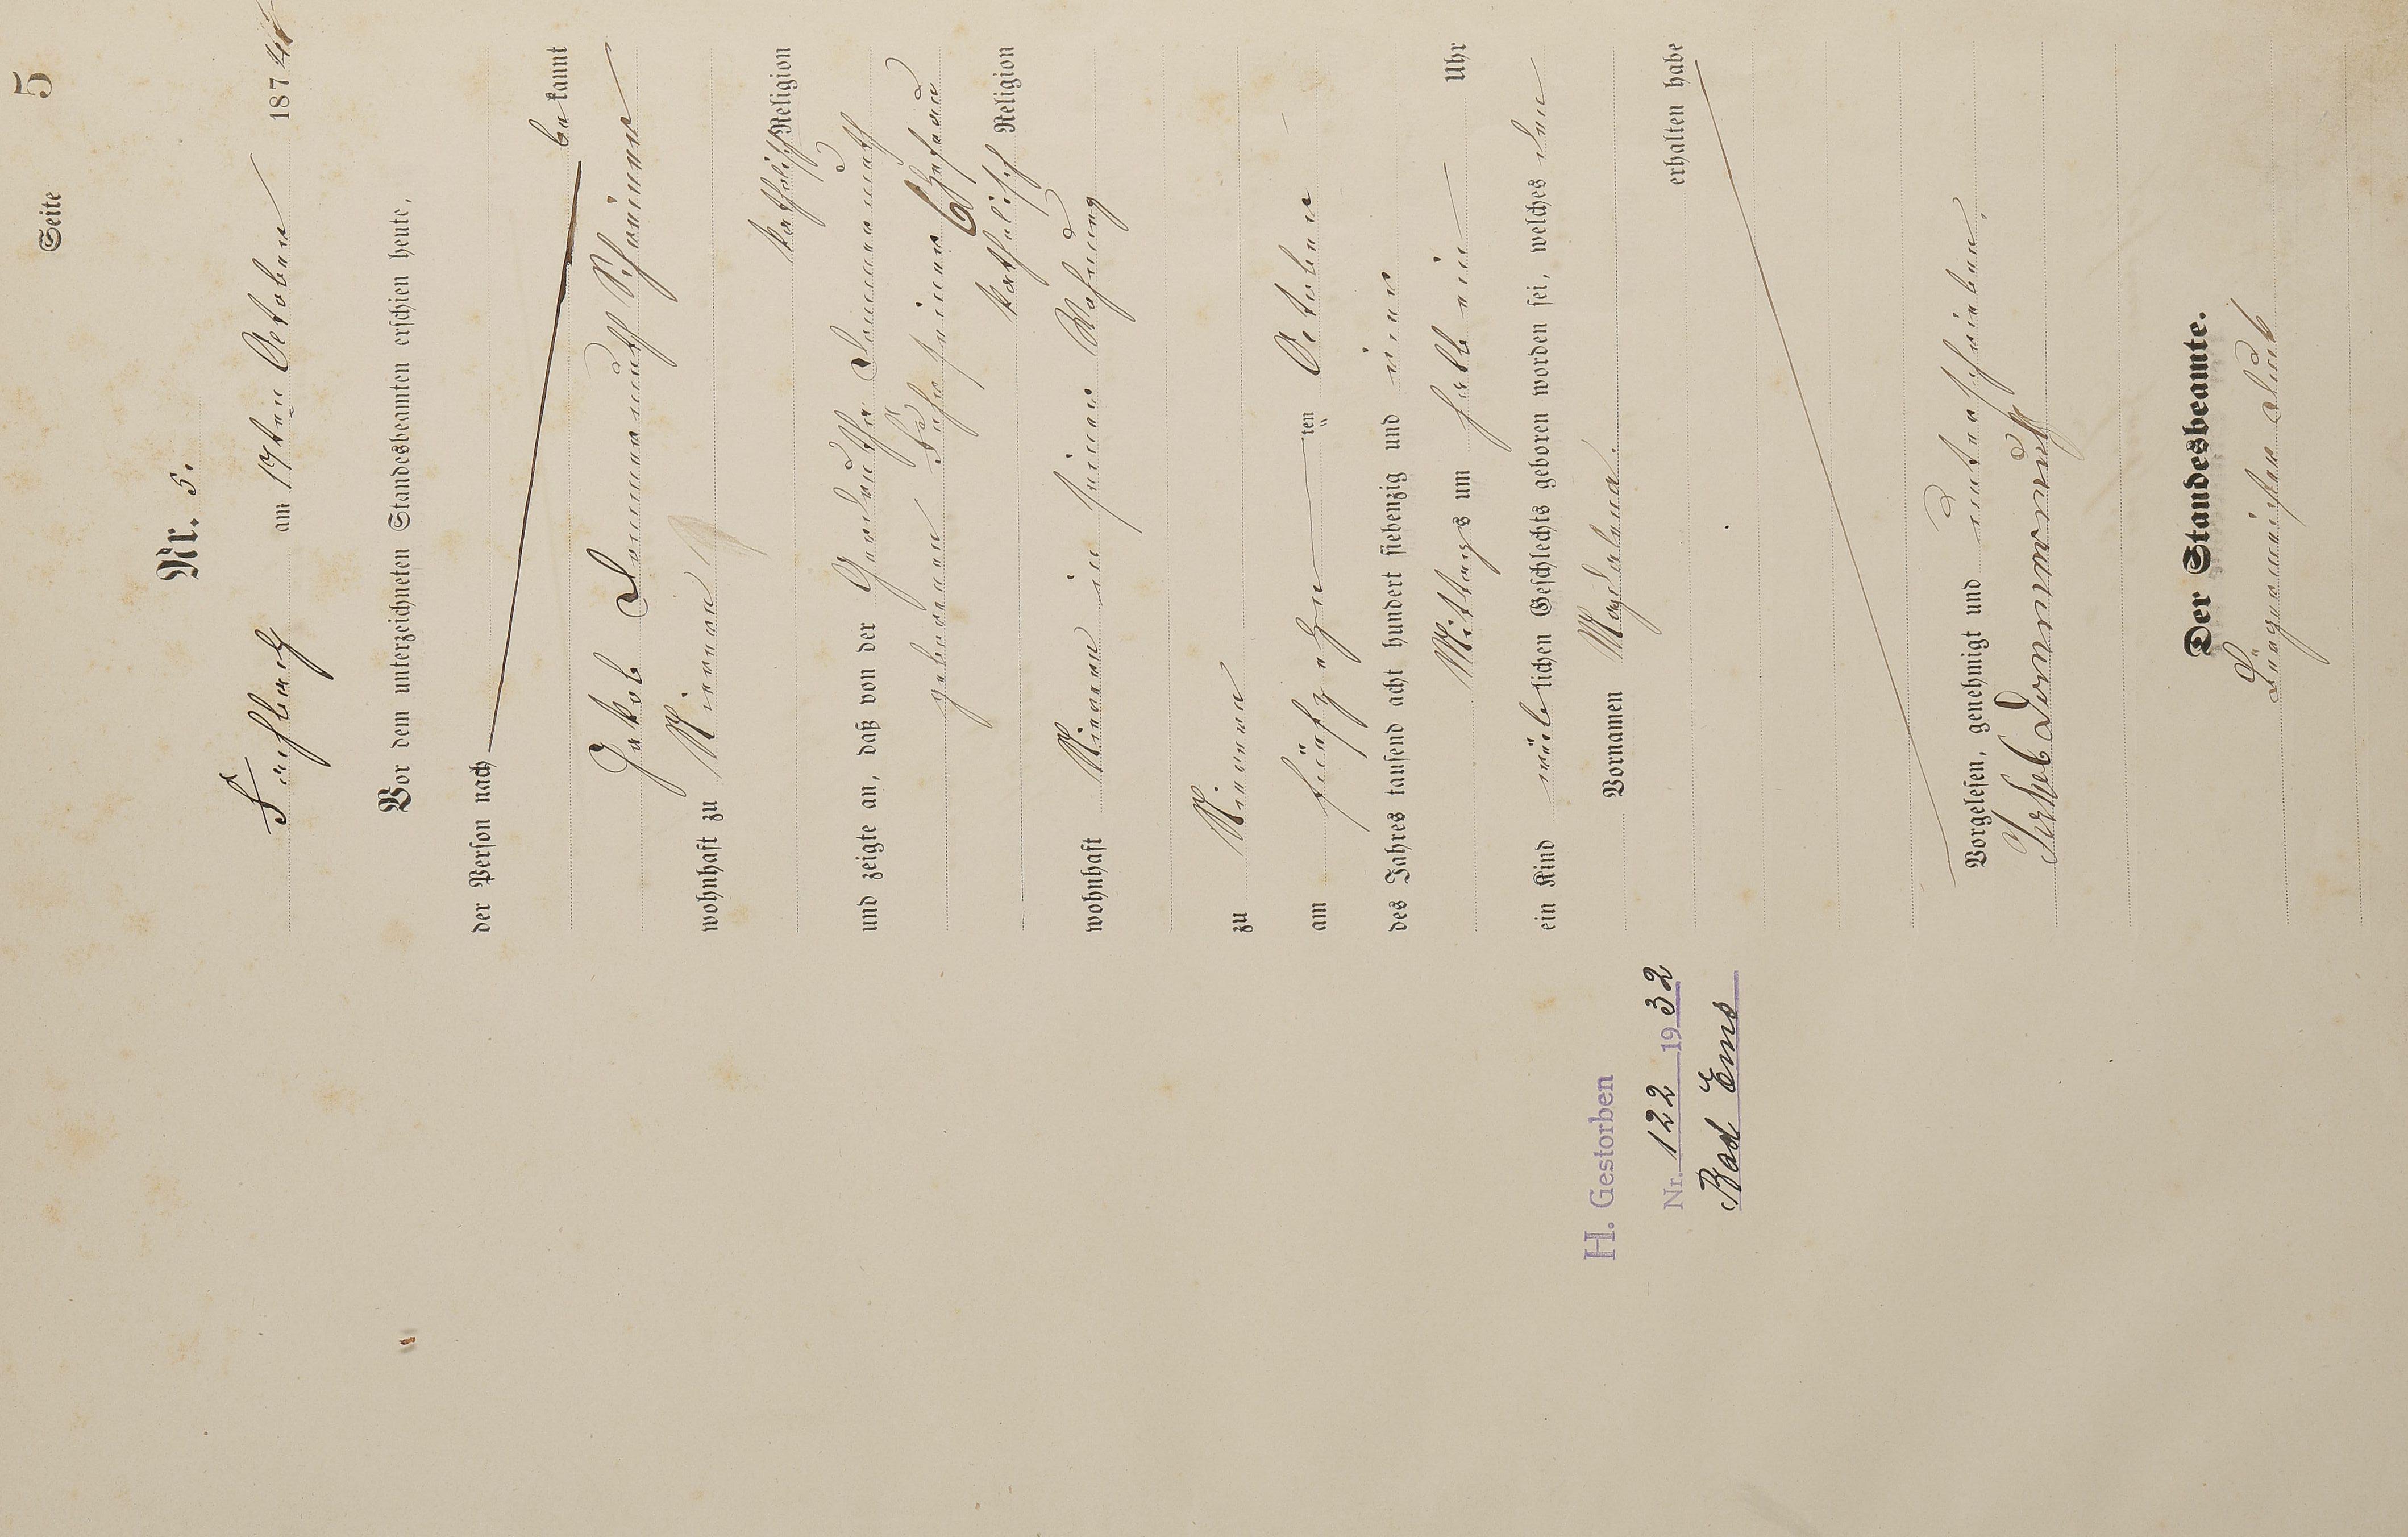 Seite 5
Nr. 5.
Fachbach am 19ten October 1874
Vor dem unterzeichneten Standesbeamten erschien heute,
der Person nach
bekannt
Jakob Dommermuth Schreiner
wohnhaft zu Nievern
katholisch Religion
und zeigte an, daß von der Dorothea Dommermuth
geborenen seiner Ehefrau
katholisch Religion
wohnhaft Nievern in seiner Wohnung
zu Nievern
am fünfzehn ten October
des Jahres tausend acht hundert siebenzig und vier
Mittags um halb ein Uhr
ein Kind weiblichen Geschlechts geboren worden sei, welches den
Vornamen Magdalena.
erhalten habe
H. Gestorben
Nr. 122 1932
Bad Ems
Vorgelesen, genehmigt und unterschrieben.
Jakob Dommermuth
Der Standesbeamte.
Bürgermeister